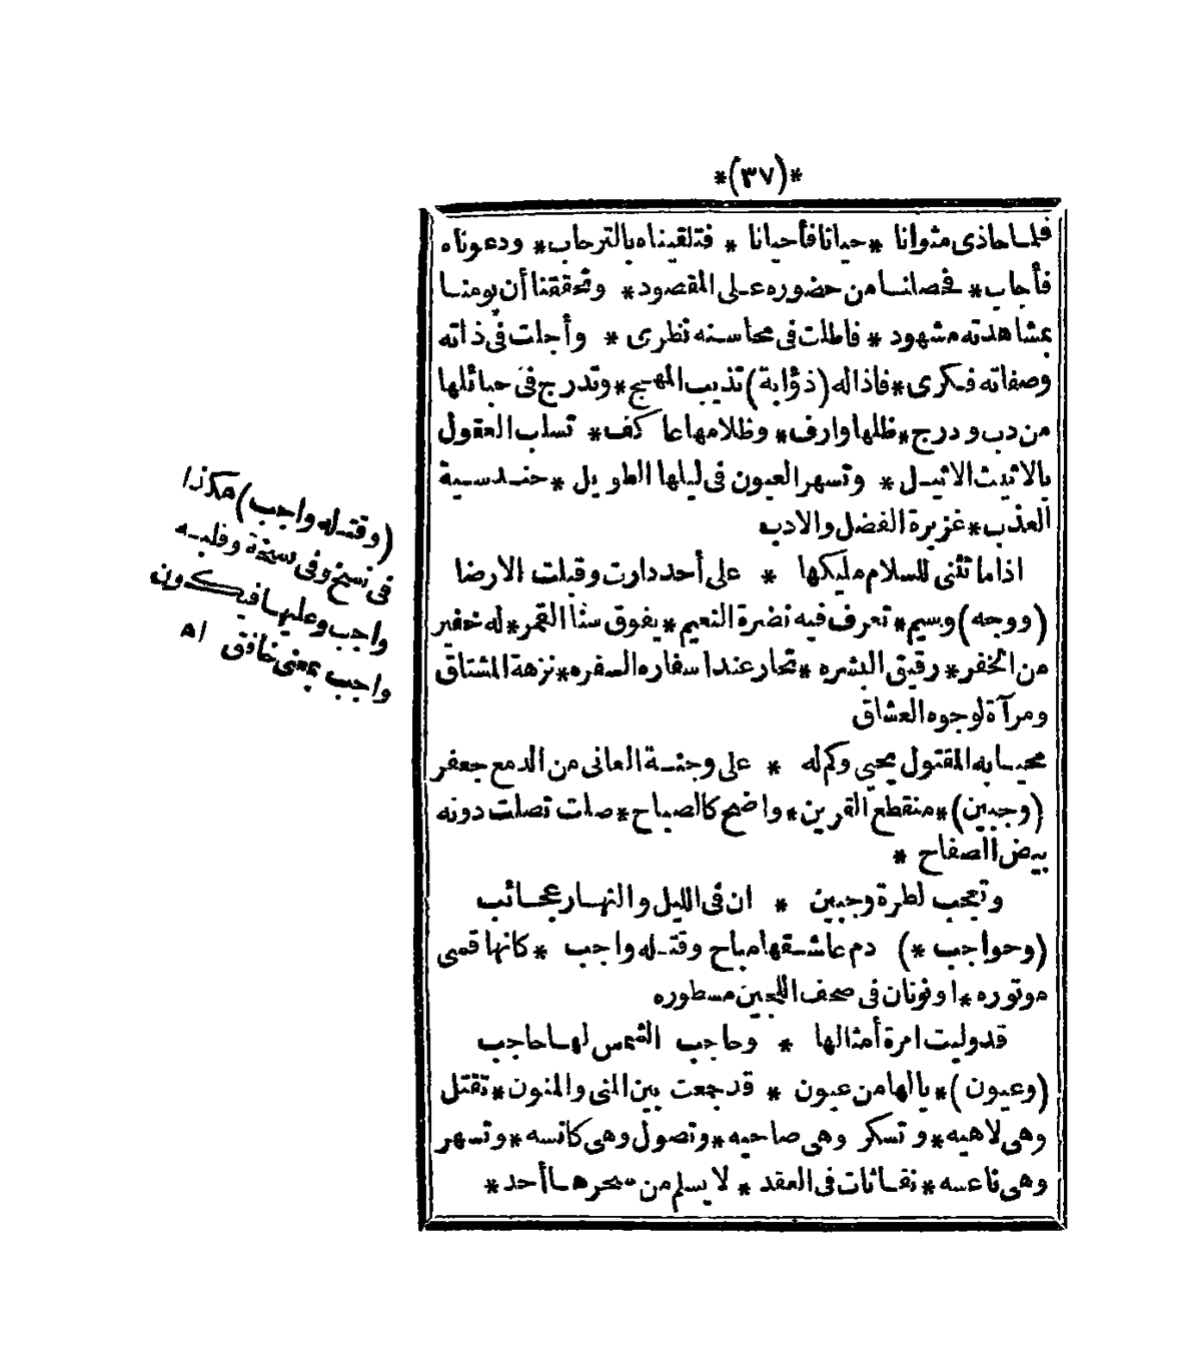 *(٣٧)*
فلما حاذى مثوانا * حيانا فأحيانا * فتلقيناه بالترحاب * ودعوناه
فأجاب * فحصلنا من حضوره على المقصود * وتحققنا أن يومنا
بمشاهدته مشهود * فاطلت فى محاسنه نظرى * وأجلت فى ذاته
وصفاته فكرى * فاذا له (ذؤابة) تذيب المهج * وتدرج فى حبائلها
من دب ودرج * ظلها وارف * وظلامها عاكف * تسلب العقول
بالاثيث الاثيل * وتسهر العيون فى ليلها الطويل * حندسية
العذب * غزيرة الفضل والادب
اذا ما تثنى للسلام مليكها * على أحد دارت وقبلت الارضا
(ووجه) وسيم * تعرف فيه نضرة النعيم * يفوق سنا القمر * له خفير
من الخفر * رقيق البشره * تحار عند اسفاره السفره * نزهة المشتاق
ومرآة لوجوه العشاق
محيا به المقتول يحيى وكم له * على وجنة العانى من الدمع جعفر
(وجبين) * منقطع القرين * واضح كالصباح * صلت تصلت دونه
بيض الصفاح *
وتعجب لطرة وجبين * ان فى الليل والنهار عجائب
(وحواجب *) دم عاشقها مباح وقتله واجب * كانها قسى
موتوره * او نونان فى صحف اللجين مسطوره
قد وليت امرة أمثالها * وحاجب الشمس لها حاجب
(وعيون) * يالها من عيون * قد جمعت بين المنى والمنون * تقتل
وهى لاهيه * وتسكر وهى صاحيه * وتصول وهى كانسه * وتسهر
وهى ناعسه * نفاثات فى العقد * لا يسلم من سحرها أحد *
(وقتله واجب) هكذا
فى نسخ وفى نسخة وقلبه
واجب وعليها فيكون
واجب بمعنى خافق اه